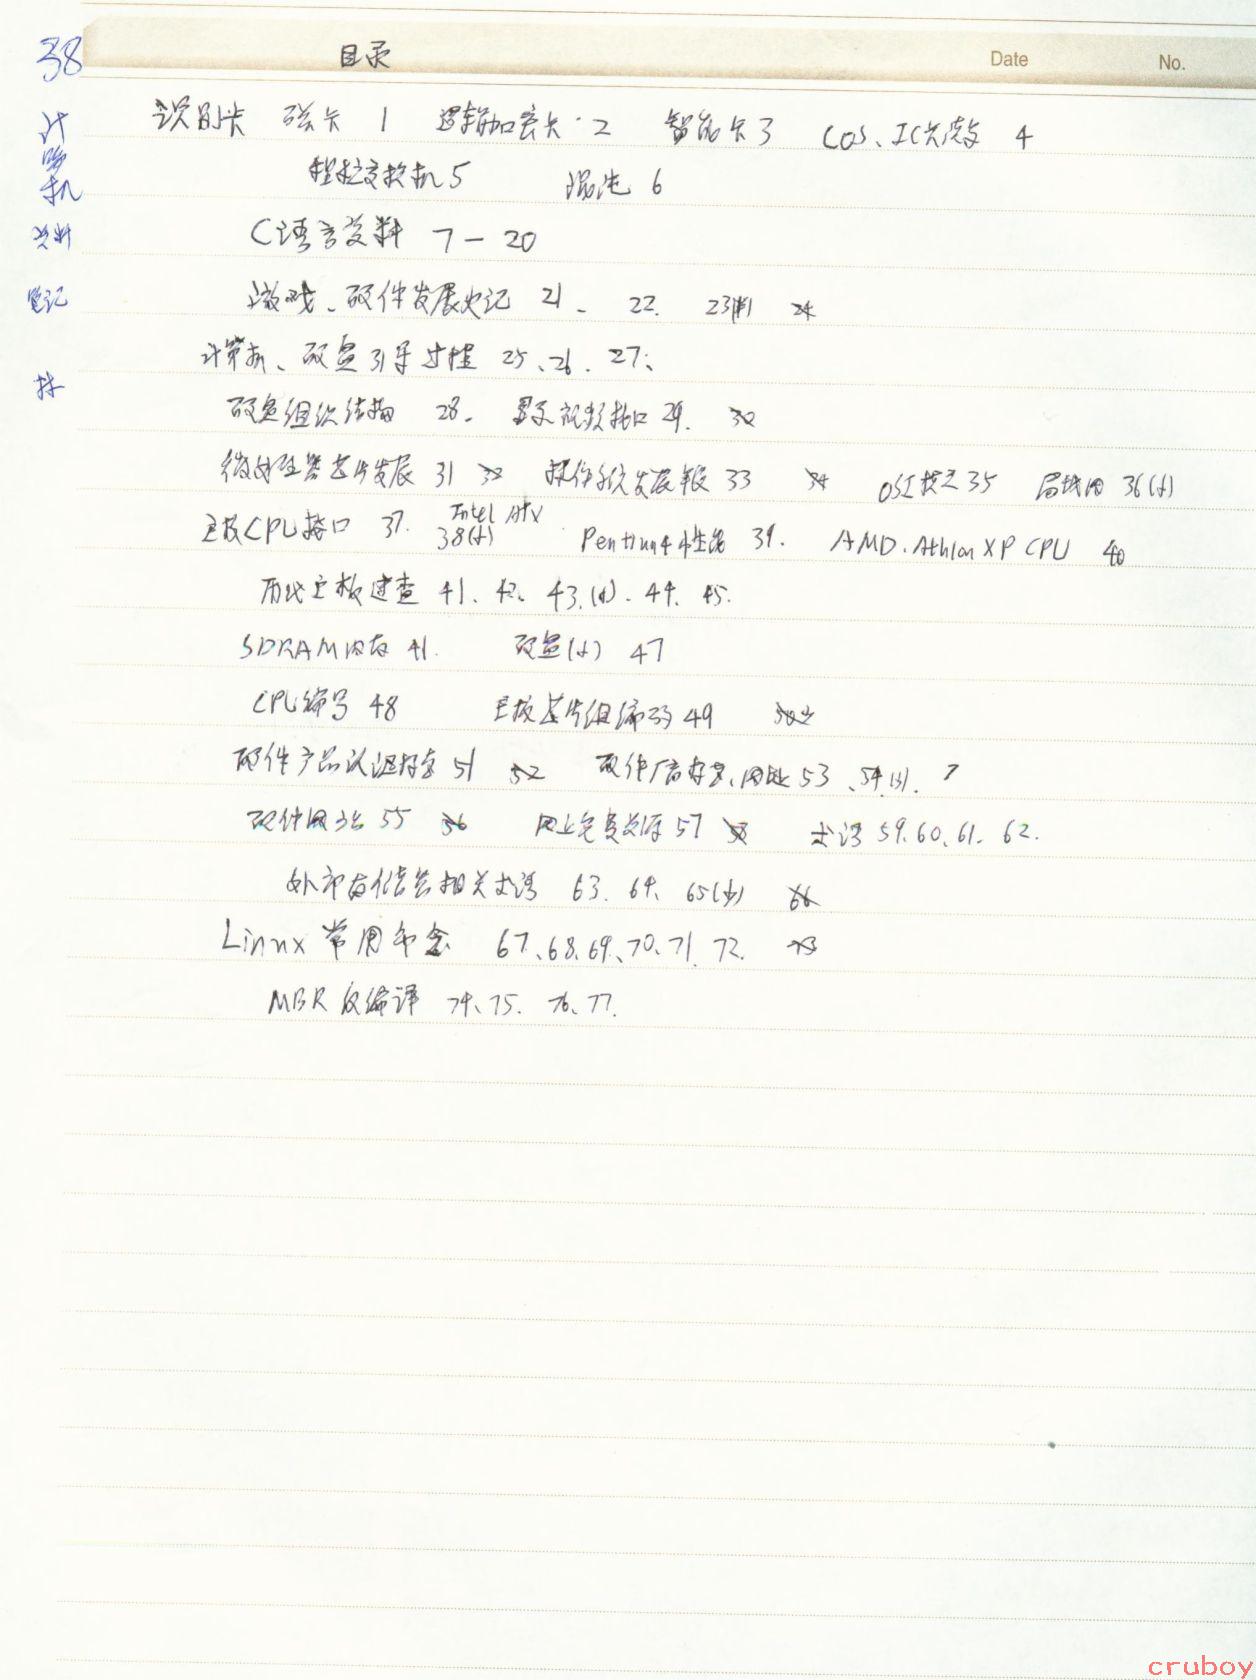 38
目录
Date
No.
计
算
机
资料
笔记
识别卡 磁卡 1 逻辑加密卡 · 2 智能卡 3 COS、IC卡 4
程控交换机 5 混沌 6
C语言资料 7-20
游戏、硬件发展史记 21、 22. 23 24
计算机、硬盘引导过程 25、26、27、
硬盘组织结构 28. 显示视频接口 29. 30
微处理器芯片发展 31 32 操作系统发展 33 34 OSI模型 35 局域网 36
主板CPU接口 37. Intel 38 Pentium4 性能 39. AMD. Athlon XP CPU 40
历代主板速查 41、42、43. 44、45.
SDRAM内存 41. 硬盘 47
CPU编号 48 主板芯片组编码 49
硬件产品认识 51 52 硬件厂商 网址 53、54
硬件网站 55 56 网上免费资源 57 58 术语 59.60、61、62.
外部存储器相关术语 63、64、65 66
Linux 常用命令 67、68、69、70、71、72. 73
MBR 反编译 74、75. 76、77.
cruboy